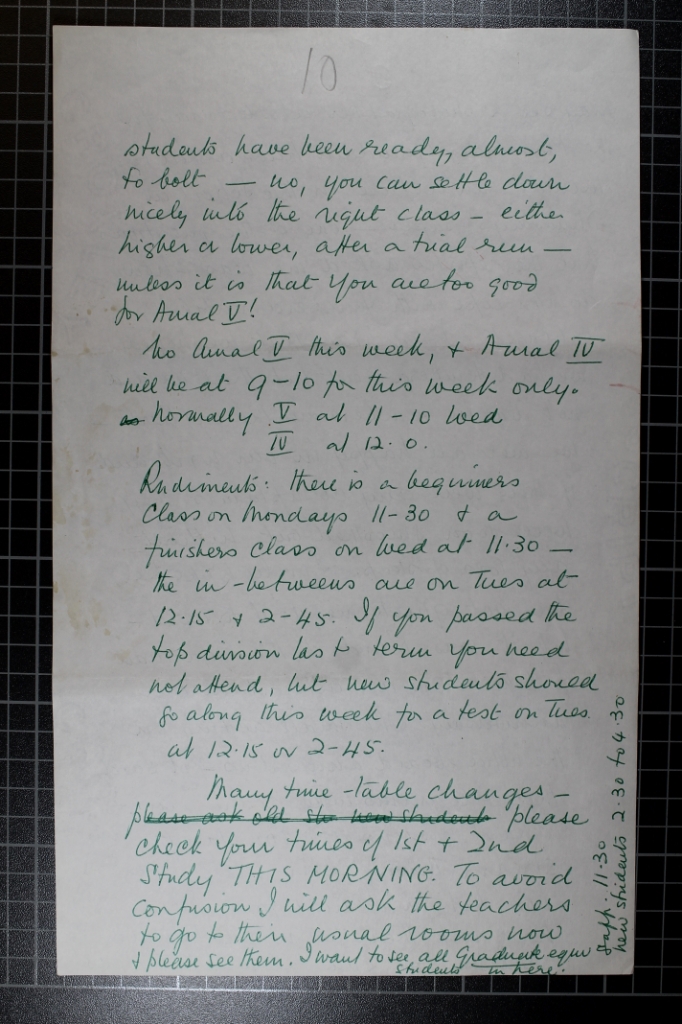 10
students have been ready, almost,
to bolt — no, you can settle down
nicely into the right class – either
higher or lower, after a trial run —
unless it is that you are too good
for Aural V!
No Aural V this week, & Aural IV
will be at 9-10 for this week only.
as Normally V at 11-10 Wed
IV at 12.0.
Rudiments: there is a beginners
Class on Mondays 11-30 & a
finishers class on Wed at 11.30 —
the in-betweens are on Tues at
12.15 & 2-45. If you passed the
top division last term you need
not attend, but new students should
go along this week for a test on Tues.
at 12.15 or 2-45.
Many time-table changes –
please ask old stu new students please
check your times of 1st + 2nd
Study THIS MORNING. To avoid
confusion I will ask the teachers
to go to their usual rooms now
& please see them. I want to see all Graduate equiv
students in here.
Supp. 11.30
new students 2.30 to 4.30